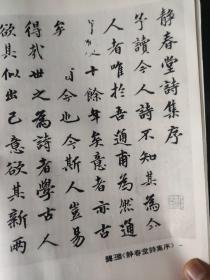 静春堂詩集序
讀今人詩不知其為今
人者唯於吾通甫為然通
十餘年矣意者亦古
矣 今也今斯人豈易
得哉世之為詩者學古人
欲其似出己意欲其新兩
龔璛《静春堂詩集序》